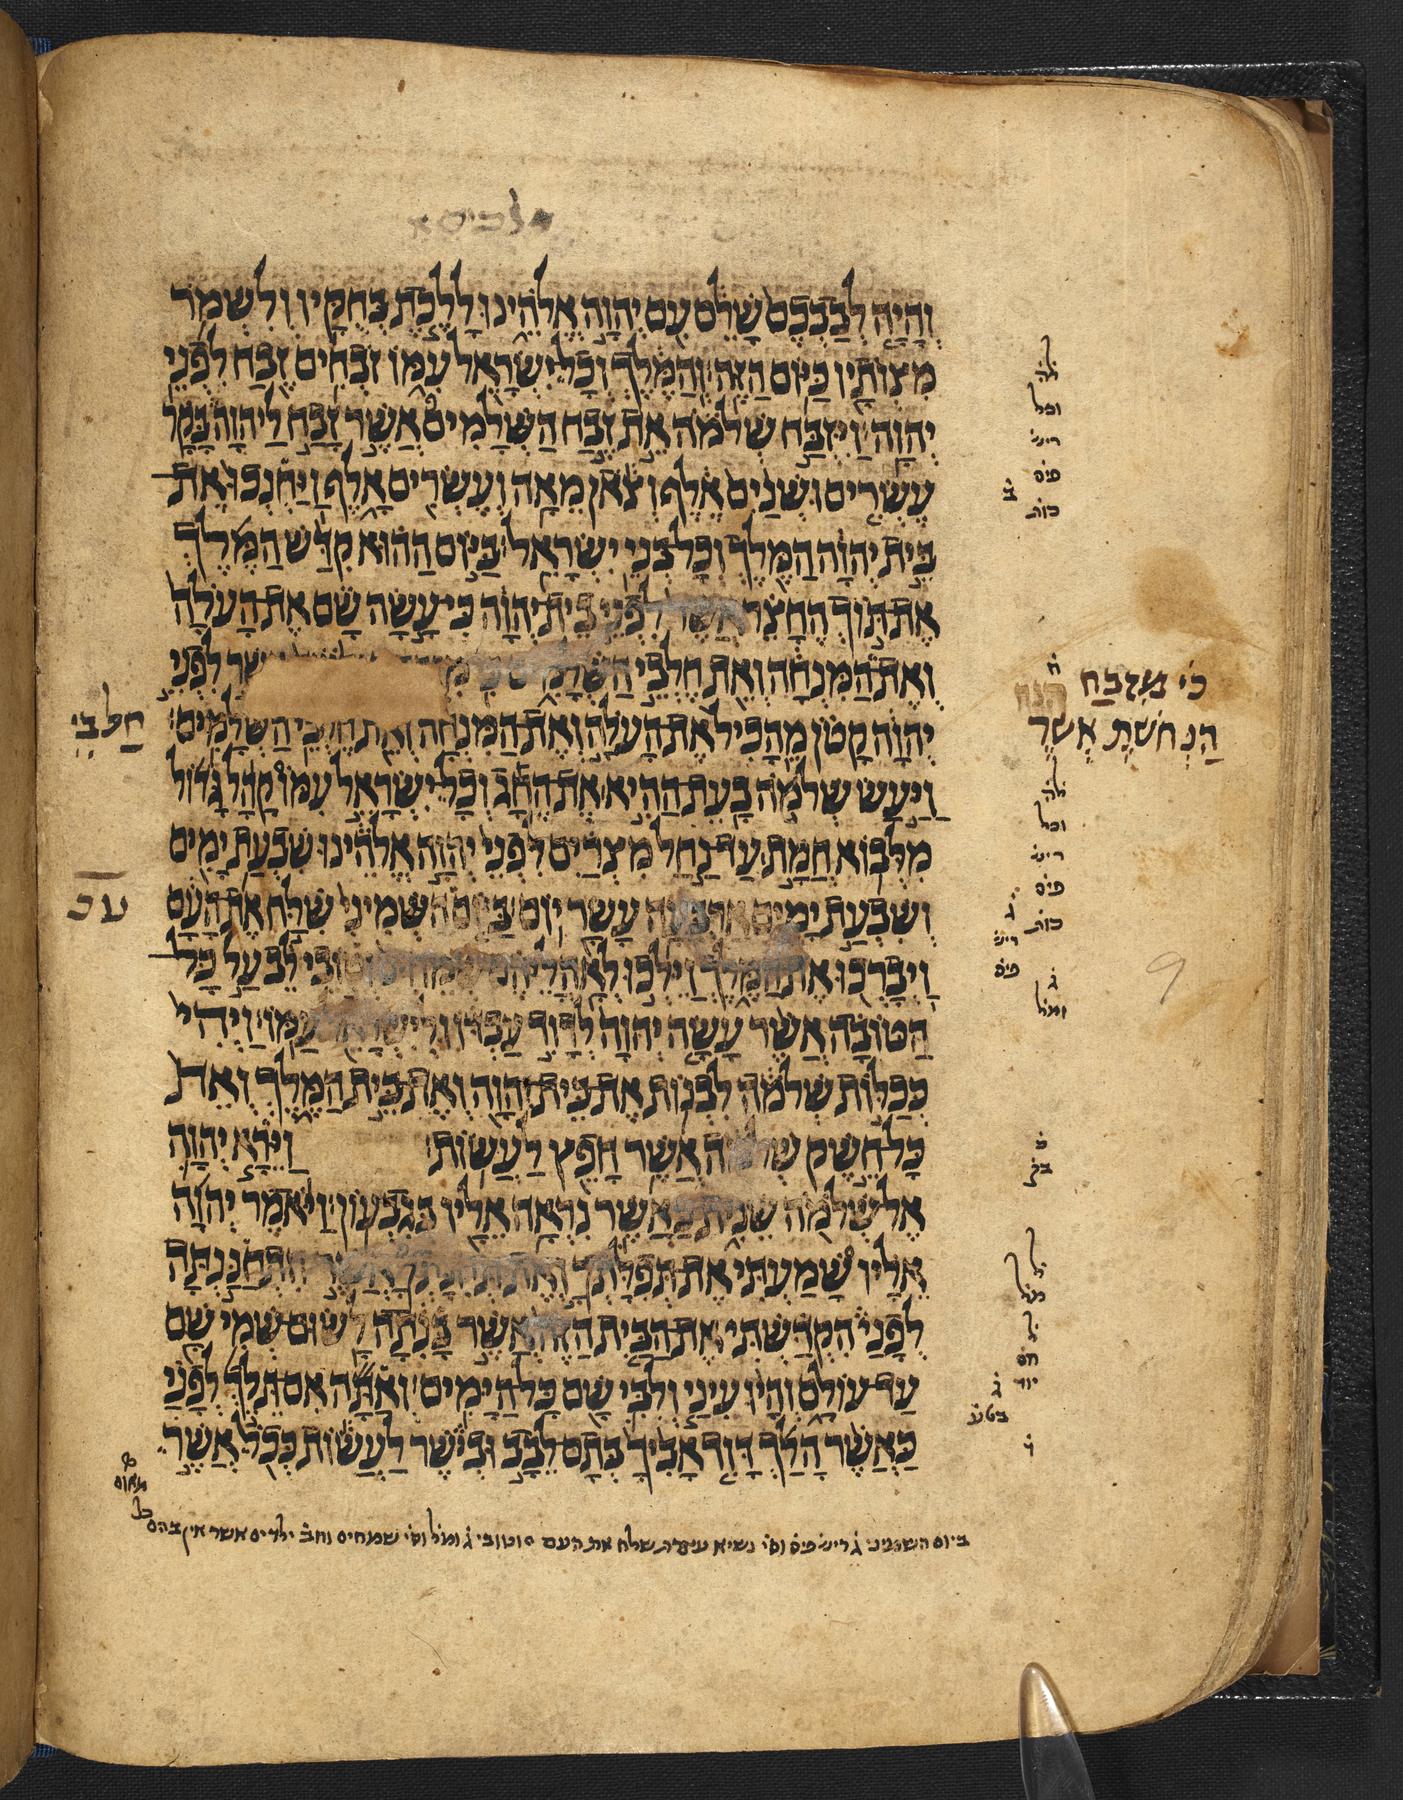 מלכים א
וְהָיָה לְבַבְכֶם שָׁלֵם עִם יְהוָה אֱלֹהֵינוּ לָלֶכֶת בְּחֻקָּיו וְלִשְׁמֹר
מִצְוֹתָיו כַּיּוֹם הַזֶּה׃ וְהַמֶּלֶךְ וְכָל יִשְׂרָאֵל עִמּוֹ זֹבְחִים זֶבַח לִפְנֵי
יְהוָה׃ וַיִּזְבַּח שְׁלֹמֹה אֵת זֶבַח הַשְּׁלָמִים אֲשֶׁר זָבַח לַיהוָה בָּקָר
עֶשְׂרִים וּשְׁנַיִם אֶלֶף וְצֹאן מֵאָה וְעֶשְׂרִים אָלֶף וַיַּחְנְכוּ אֶת
בֵּית יְהוָה הַמֶּלֶךְ וְכָל בְּנֵי יִשְׂרָאֵל׃ בַּיּוֹם הַהוּא קִדַּשׁ הַמֶּלֶךְ
אֶת תּוֹךְ הֶחָצֵר אֲשֶׁר לִפְנֵי בֵית יְהוָה כִּי עָשָׂה שָׁם אֶת הָעֹלָה
וְאֶת הַמִּנְחָה וְאֵת חֶלְבֵי הַשְּׁלָמִים אֲשֶׁר לִפְנֵי
יְהוָה קָטֹן מֵהָכִיל אֶת הָעֹלָה וְאֶת הַמִּנְחָה וְאֵת חֶלְבֵי הַשְּׁלָמִים׃
וַיַּעַשׂ שְׁלֹמֹה בָעֵת הַהִיא אֶת הֶחָג וְכָל יִשְׂרָאֵל עִמּוֹ קָהָל גָּדוֹל
מִלְּבוֹא חֲמָת עַד נַחַל מִצְרַיִם לִפְנֵי יְהוָה אֱלֹהֵינוּ שִׁבְעַת יָמִים
וְשִׁבְעַת יָמִים אַרְבָּעָה עָשָׂר יוֹם׃ בַּיּוֹם הַשְּׁמִינִי שִׁלַּח אֶת הָעָם
וַיְבָרֲכוּ אֶת הַמֶּלֶךְ וַיֵּלְכוּ לְאָהֳלֵיהֶם שְׂמֵחִים וְטוֹבֵי לֵב עַל כָּל
הַטּוֹבָה אֲשֶׁר עָשָׂה יְהוָה לְדָוִד עַבְדּוֹ וּלְיִשְׂרָאֵל עַמּוֹ׃ וַיְהִי
כְּכַלּוֹת שְׁלֹמֹה לִבְנוֹת אֶת בֵּית יְהוָה וְאֶת בֵּית הַמֶּלֶךְ וְאֵת
כָּל חֵשֶׁק שְׁלֹמֹה אֲשֶׁר חָפֵץ לַעֲשׂוֹת׃ וַיֵּרָא יְהוָה
אֶל שְׁלֹמֹה שֵׁנִית כַּאֲשֶׁר נִרְאָה אֵלָיו בְּגִבְעוֹן׃ וַיֹּאמֶר יְהוָה
אֵלָיו שָׁמַעְתִּי אֶת תְּפִלָּתְךָ וְאֶת תְּחִנָּתְךָ אֲשֶׁר הִתְחַנַּנְתָּה
לְפָנַי הִקְדַּשְׁתִּי אֶת הַבַּיִת הַזֶּה אֲשֶׁר בָּנִתָה לָשׂוּם שְׁמִי שָׁם
עַד עוֹלָם וְהָיוּ עֵינַי וְלִבִּי שָׁם כָּל הַיָּמִים׃ וְאַתָּה אִם תֵּלֵךְ לְפָנַי
כַּאֲשֶׁר הָלַךְ דָּוִד אָבִיךָ בְּתָם לֵבָב וּבְיֹשֶׁר לַעֲשׂוֹת כְּכֹל אֲשֶׁר
כִּי מִזְבַּח
הַנְּחֹשֶׁת אֲשֶׁר
חֶלְבֵי
ביום השמיני ג̇ ריט̇ פיס̇ וסי̇ נשיא עצרת שלח את העם וטובי ג̇ ומל̇ וסי̇ שמחים וחב̇ ילדים אשר אין בהם
כל
מאום
9